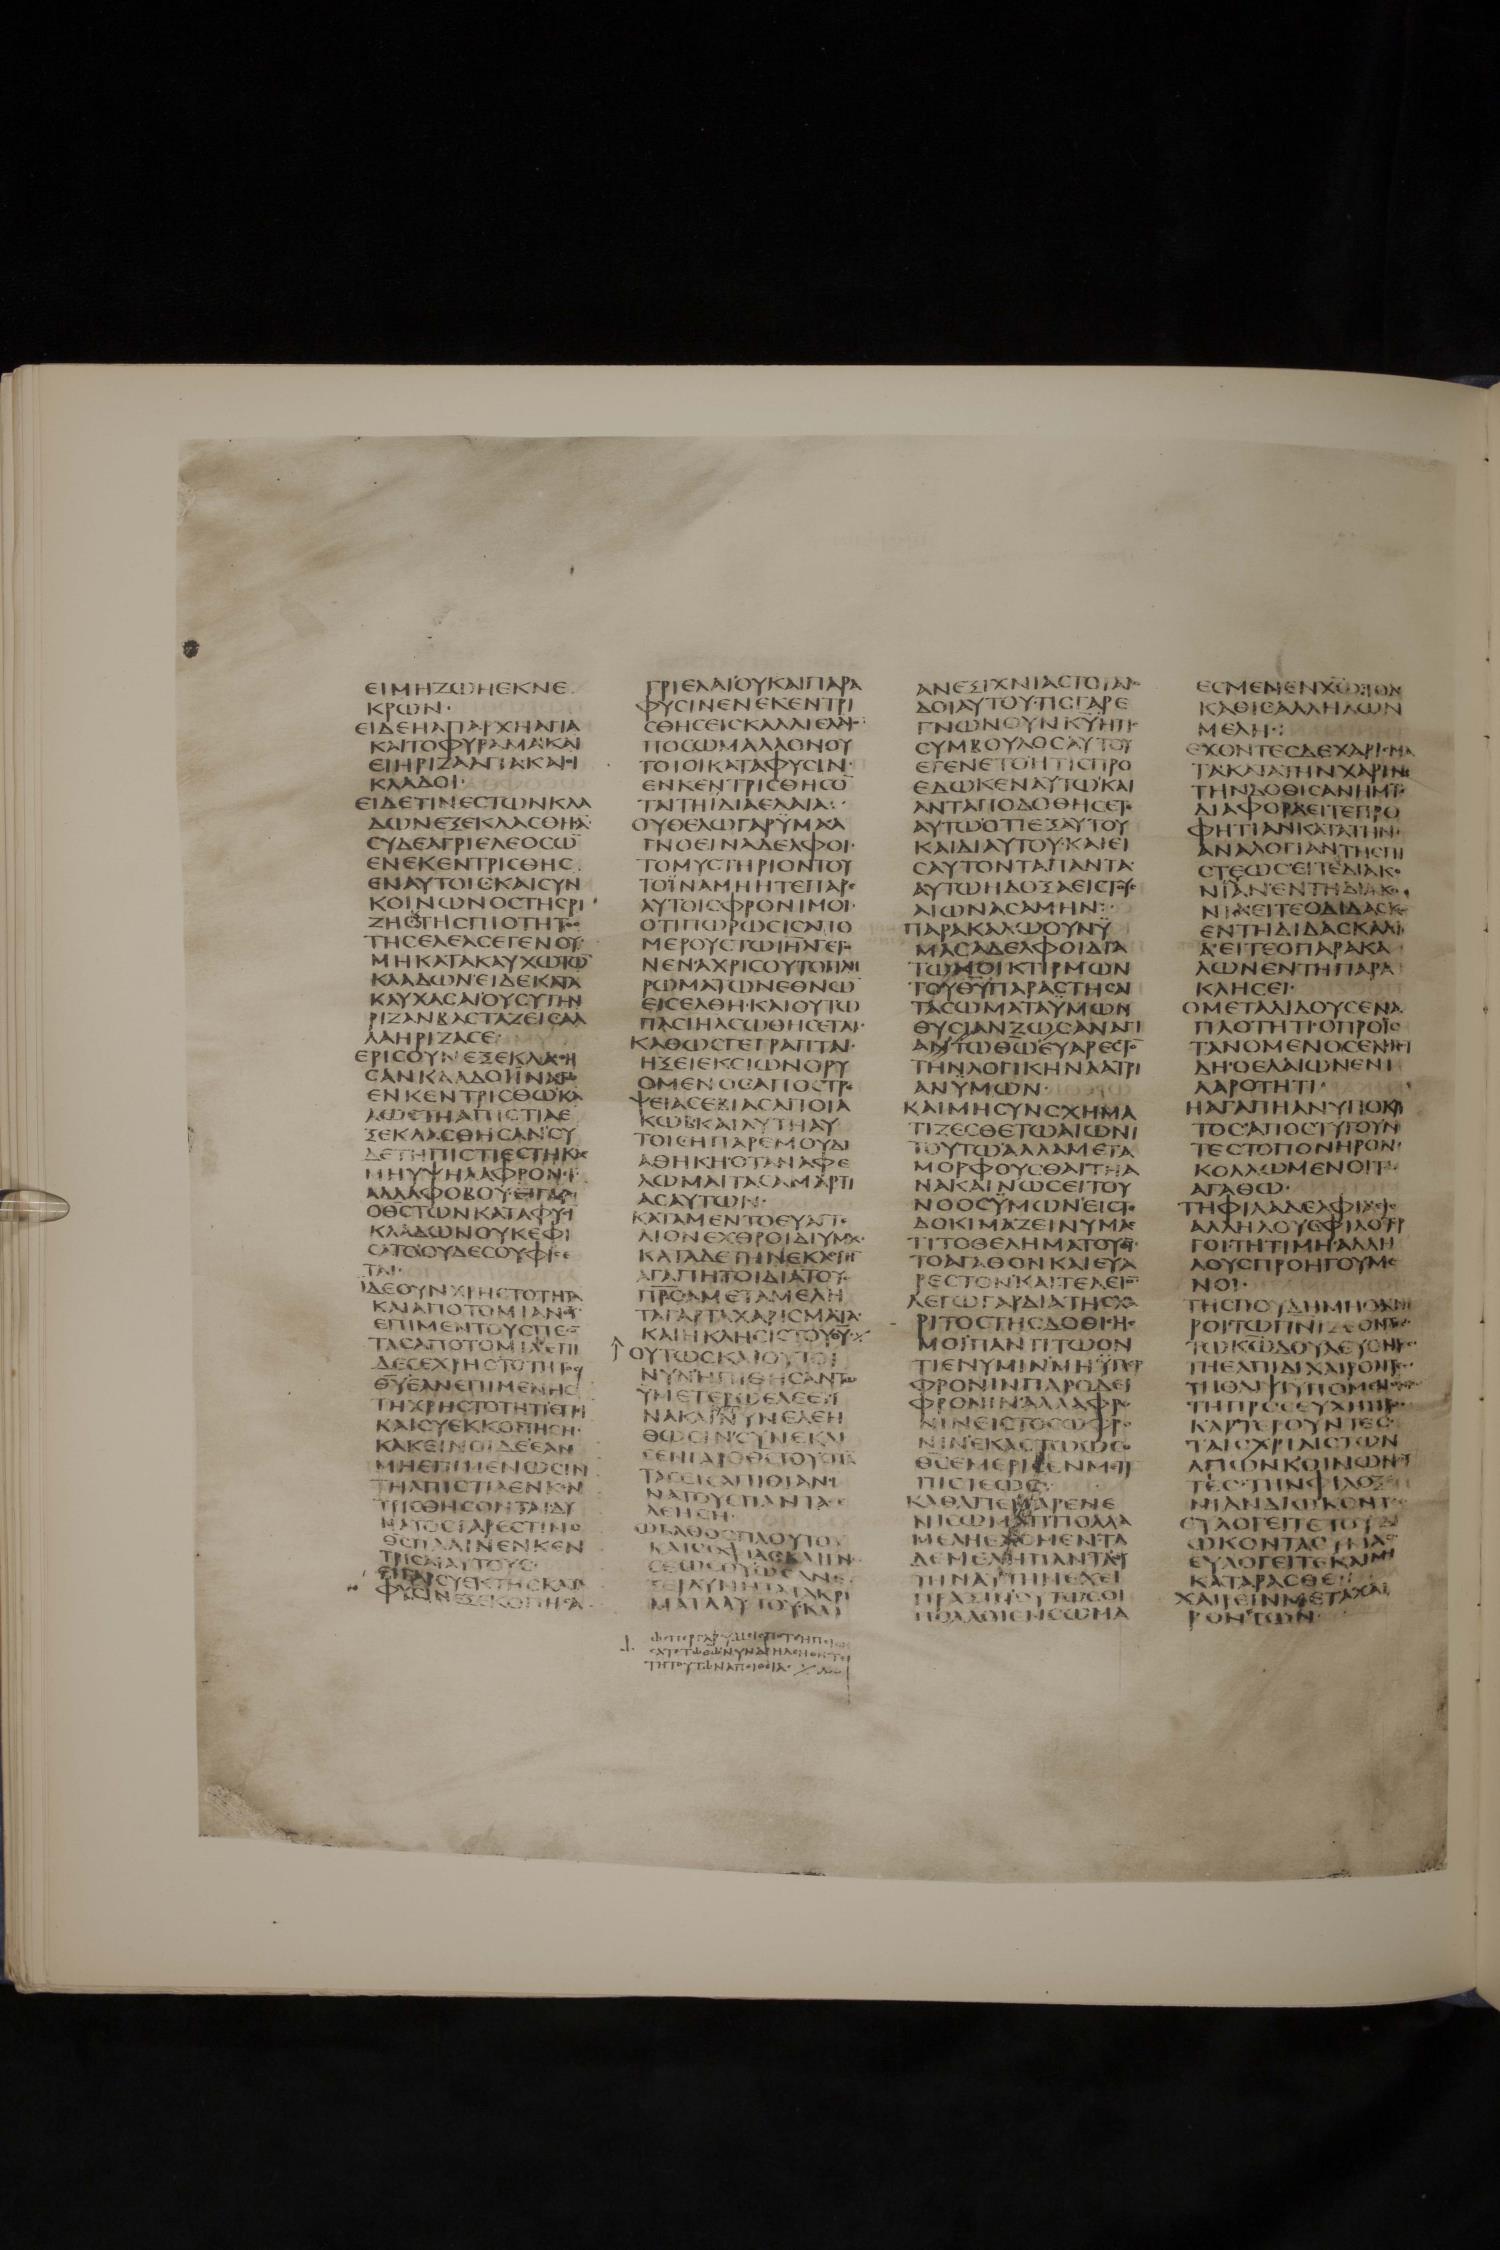 ΕΙΜΗΖΩΗΕΚΝΕ
ΚΡΩΝ·
ΕΙΔΕΗΑΠΑΡΧΗΑΓΙΑ
ΚΑΙΤΟΦΥΡΑΜΑ·ΚΑΙ
ΕΙΗΡΙΖΑΑΓΙΑΚΑΙΟΙ
ΚΛΑΔΟΙ·
ΕΙΔΕΤΙΝΕΣΤΩΝΚΛΑ
ΔΩΝΕΞΕΚΛΑΣΘΗΣΑ
ΣΥΔΕΑΓΡΙΕΛΕΟΣΩ̅
ΕΝΕΚΕΝΤΡΙΣΘΗΣ
ΕΝΑΥΤΟΙΣΚΑΙΣΥΝ
ΚΟΙΝΩΝΟΣΤΗΣΡΙ
ΖΗΣΤΗΣΠΙΟΤΗΤΟΣ
ΤΗΣΕΛΕΑΣΕΓΕΝΟΥ
ΜΗΚΑΤΑΚΑΥΧΩΤΩ̅
ΚΛΑΔΩΝΕΙΔΕΚΑΤΑ
ΚΑΥΧΑΣΑΙΟΥΣΥΤΗΝ
ΡΙΖΑΝΒΑΣΤΑΖΕΙΣΑΛ
ΛΑΗΡΙΖΑΣΕ·
ΕΡΙΣΟΥΝΕΞΕΚΛΑΣΘΗ
ΣΑΝΚΛΑΔΟΙΪΝΑΕΓΩ
ΕΝΚΕΝΤΡΙΣΘΩΚΑ
ΛΩΣΤΗΑΠΙΣΤΙΑΕ
ΞΕΚΛΑΣΘΗΣΑΝΣΥ
ΔΕΤΗΠΙΣΤΙΕΣΤΗΚΑΣ
ΜΗΥΨΗΛΑΦΡΟΝΙ
ΑΛΛΑΦΟΒΟΥ·ΕΙΓΑΡΟ
ΟΘΣΤΩΝΚΑΤΑΦΥΣΙ
ΚΛΑΔΩΝΟΥΚΕΦΙ
ΣΑΤΟΟΥΔΕΣΟΥΦΙΣΕ
ΤΑΙ·
ΙΔΕΟΥΝΧΡΗΣΤΟΤΗΤΑ
ΚΑΙΑΠΟΤΟΜΙΑΝΘΥ
ΕΠΙΜΕΝΤΟΥΣΠΕΣΟ
ΤΑΣΑΠΟΤΟΜΙΑΕΠΙ
ΔΕΣΕΧΡΗΣΤΟΤΗΤΟΣ
ΘΥΕΑΝΕΠΙΜΕΝΗΣ
ΤΗΧΡΗΣΤΟΤΗΤΙΕΠΙ
ΚΑΙΣΥΕΚΚΟΠΗΣΗ·
ΚΑΚΕΙΝΟΙΔΕΕΑΝ
ΜΗΕΠΙΜΕΝΩΣΙΝ
ΤΗΑΠΙΣΤΙΑΕΝΚΕΝ
ΤΡΙΣΘΗΣΟΝΤΑΙΔΥ
ΝΑΤΟΣΓΑΡΕΣΤΙΝΟ
ΘΣΠΑΛΙΝΕΝΚΕΝ
ΤΡΙΣΑΙΑΥΤΟΥΣ·
ΕΙΓΑΡΣΥΕΚΤΗΣΚΑΤΑ
ΦΥΣΙΝΕΞΕΚΟΠΗΣΑ
ΓΡΙΕΛΑΙΟΥΚΑΙΠΑΡΑ
ΦΥΣΙΝΕΝΕΚΕΝΤΡΙ
ΣΘΗΣΕΙΣΚΑΛΛΙΕΛΑΙ
ΠΟΣΩΜΑΛΛΟΝΟΥ
ΤΟΙΟΙΚΑΤΑΦΥΣΙΝ·
ΕΝΚΕΝΤΡΙΣΘΗΣΟ̅
ΤΑΙΤΗΪΔΙΑΕΛΑΙΑ:
ΟΥΘΕΛΩΓΑΡΫΜΑΣΑ
ΓΝΟΕΙΝΑΔΕΛΦΟΙ·
ΤΟΜΥΣΤΗΡΙΟΝΤΟΥ
ΤΟΪΝΑΜΗΗΤΕΠΑΡ
ΑΥΤΟΙΣΦΡΟΝΙΜΟΙ·
ΟΤΙΠΩΡΩΣΙΣΑΠΟ
ΜΕΡΟΥΣΤΩΙΗΛΓΕΓΟ
ΝΕΝΑΧΡΙΣΟΥΤΟΠΛΗ
ΡΩΜΑΤΩΝΕΘΝΩ̅
ΕΙΣΕΛΘΗ·ΚΑΙΟΥΤΩ
ΠΑΣΙΗΛΣΩΘΗΣΕΤΑΙ·
ΚΑΘΩΣΓΕΓΡΑΠΤΑΙ·
ΗΞΕΙΕΚΣΙΩΝΟΡΥ
ΟΜΕΝΟΣΑΠΟΣΤΡΕ
ΨΕΙΑΣΕΒΙΑΣΑΠΟΙΑ
ΚΩΒΚΑΙΑΥΤΗΑΥ
ΤΟΙΣΗΠΑΡΕΜΟΥΔΙ
ΑΘΗΚΗΟΤΑΝΑΦΕ
ΛΩΜΑΙΤΑΣΑΜΑΡΤΙ
ΑΣΑΥΤΩΝ·
ΚΑΤΑΜΕΝΤΟΕΥΑΓΓΕ
ΛΙΟΝΕΧΘΡΟΙΔΙΥΜΑΣ
ΚΑΤΑΔΕΤΗΝΕΚΛΟΓΗ
ΑΓΑΠΗΤΟΙΔΙΑΤΟΥΣ
ΠΡΣΑΜΕΤΑΜΕΛΗ
ΤΑΓΑΡΤΑΧΑΡΙΣΜΑΤΑ
ΚΑΙΗΚΛΗΣΙΣΤΟΥΘΥ·
ΟΥΤΩΣΚΑΙΟΥΤΟΙ
ΝΥΝΗΠΙΘΗΣΑΝΤΩ
ΫΜΕΤΕΡΩΕΛΕΕΙΪ
ΝΑΚΑΙΝΥΝΕΛΕΗ
ΘΩΣΙΝ·ΣΥΝΕΚΛΙ
ΣΕΝΓΑΡΟΘΣΤΟΥΣΠΑ
ΤΑΣΕΙΣΑΠΙΘΙΑΝΙ
ΝΑΤΟΥΣΠΑΝΤΑΣΕ
ΛΕΗΣΗ·
ΩΒΑΘΟΣΠΛΟΥΤΟΥ
ΚΑΙΣΟΦΙΑΣΚΑΙΓΝΩ
ΣΕΩΣΘΥΩΣΑΝΕ
ΞΕΡΑΥΝΗΤΑΤΑΚΡΙ
ΜΑΤΑΑΥΤΟΥ·ΚΑΙ
ΑΝΕΞΙΧΝΙΑΣΤΟΙΑΙΟ
ΔΟΙΑΥΤΟΥ·ΤΙΣΓΑΡΕ
ΓΝΩΝΟΥΝΚΥΗΤΙΣ
ΣΥΜΒΟΥΛΟΣΑΥΤΟΥ
ΕΓΕΝΕΤΟΗΤΙΣΠΡΟ
ΕΔΩΚΕΝΑΥΤΩΚΑΙ
ΑΝΤΑΠΟΔΟΘΗΣΕΤΑΙ
ΑΥΤΩΟΤΙΕΞΑΥΤΟΥ
ΚΑΙΔΙΑΥΤΟΥ·ΚΑΙΕΙ
ΣΑΥΤΟΝΤΑΠΑΝΤΑ·
ΑΥΤΩΗΔΟΞΑΕΙΣΤΟΥΣ
ΑΙΩΝΑΣΑΜΗΝ:
ΠΑΡΑΚΑΛΩΟΥΝΫ
ΜΑΣΑΔΕΛΦΟΙΔΙΑ
ΤΩΝΟΙΚΤΙΡΜΩΝ
ΤΟΥΘΥΠΑΡΑΣΤΗΣΑΙ
ΤΑΣΩΜΑΤΑΫΜΩΝ
ΘΥΣΙΑΝΖΩΣΑΝΑΓΙ
ΑΝΤΩΘΩΕΥΑΡΕΣΤΟ
ΤΗΝΛΟΓΙΚΗΝΛΑΤΡΙ
ΑΝΫΜΩΝ·
ΚΑΙΜΗΣΥΝΣΧΗΜΑ
ΤΙΖΕΣΘΕΤΩΑΙΩΝΙ
ΤΟΥΤΩΑΛΛΑΜΕΤΑ
ΜΟΡΦΟΥΣΘΑΙΤΗΑ
ΝΑΚΑΙΝΩΣΕΙΤΟΥ
ΝΟΟΣΫΜΩΝΕΙΣΤΟ
ΔΟΚΙΜΑΖΕΙΝΥΜΑΣ
ΤΙΤΟΘΕΛΗΜΑΤΟΥΘΥ
ΤΟΑΓΑΘΟΝΚΑΙΕΥΑ
ΡΕΣΤΟΝΚΑΙΤΕΛΕΙΟ
ΛΕΓΩΓΑΡΔΙΑΤΗΣΧΑ
ΡΙΤΟΣΤΗΣΔΟΘΙΣΗΣ
ΜΟΙΠΑΝΤΙΤΩΟΝ
ΤΙΕΝΥΜΙΝΜΗΫΠΕΡ
ΦΡΟΝΙΝΠΑΡΟΔΕΙ
ΦΡΟΝΙΝΑΛΛΑΦΡΟ
ΝΙΝΕΙΣΤΟΣΩΦΡΟ
ΝΙΝΕΚΑΣΤΩΩΣΟ
ΘΣΕΜΕΡΙΣΕΝΜΕΤΡ
ΠΙΣΤΕΩΣ·
ΚΑΘΑΠΕΡΓΑΡΕΝΕ
ΝΙΣΩΜΑΤΙΠΟΛΛΑ
ΜΕΛΗΕΧΟΜΕΝΤΑ
ΔΕΜΕΛΗΠΑΝΤΑΟΥ
ΤΗΝΑΥΤΗΝΕΧΕΙ
ΠΡΑΞΙΝΟΥΤΩΣΟΙ
ΠΟΛΛΟΙΕΝΣΩΜΑ
ΕΣΜΕΝΕΝΧΩΤΟΔΕ
ΚΑΘΙΣΑΛΛΗΛΩΝ
ΜΕΛΗ·:
ΕΧΟΝΤΕΣΔΕΧΑΡΙΣΜΑ
ΤΑΚΑΤΑΤΗΝΧΑΡΙΝ
ΤΗΝΔΟΘΙΣΑΝΗΜΙ
ΔΙΑΦΟΡΑΕΙΤΕΠΡΟ
ΦΗΤΙΑΝΚΑΤΑΤΗΝ
ΑΝΑΛΟΓΙΑΝΤΗΣΠΙ
ΣΤΕΩΣ·ΕΙΤΕΔΙΑΚΟ
ΝΙΑΝ·ΕΝΤΗΔΙΑΚΟ
ΝΙΑΕΙΤΕΟΔΙΔΑΣΚΩ
ΕΝΤΗΔΙΔΑΣΚΑΛΙ
Α·ΕΙΤΕΟΠΑΡΑΚΑ
ΛΩΝΕΝΤΗΠΑΡΑ
ΚΛΗΣΕΙ·
ΟΜΕΤΑΔΙΔΟΥΣΕΝΑ
ΠΛΟΤΗΤΙ·ΟΠΡΟΪΣ
ΤΑΝΟΜΕΝΟΣΕΝΣΠΟΥ
ΔΗΟΕΛΑΙΩΝΕΝΙ
ΛΑΡΟΤΗΤΙ·
ΗΑΓΑΠΗΑΝΥΠΟΚΡΙ
ΤΟΣ·ΑΠΟΣΤΥΓΟΥΝ
ΤΕΣΤΟΠΟΝΗΡΟΝ·
ΚΟΛΛΩΜΕΝΟΙΤΩ
ΑΓΑΘΩ·
ΤΗΦΙΛΑΔΕΛΦΙΑΕΙΣ
ΑΛΛΗΛΟΥΣΦΙΛΟΣΤΡ
ΓΟΙ·ΤΗΤΙΜΗΑΛΛΗ
ΛΟΥΣΠΡΟΗΓΟΥΜΕ
ΝΟΙ·
ΤΗΣΠΟΥΔΗΜΗΟΚΝΗ
ΡΟΙΤΩΠΝΙΖΕΟΝΤΕΣ
ΤΩΚΩΔΟΥΛΕΥΟΝΤΕΣ
ΤΗΕΛΠΙΔΙΧΑΙΡΟΝΤΕΣ
ΤΗΘΛΙΨΙΥΠΟΜΕΝΟΝΤΕΣ
ΤΗΠΡΟΣΕΥΧΗΠΡΟΣ
ΚΑΡΤΕΡΟΥΝΤΕΣ
ΤΑΙΣΧΡΙΑΙΣΤΩΝ
ΑΓΙΩΝΚΟΙΝΩΝΟΥ
ΤΕΣ·ΤΗΝΦΙΛΟΞΕ
ΝΙΑΝΔΙΩΚΟΝΤΕΣ
ΕΥΛΟΓΕΙΤΕΤΟΥΣΔΙ
ΩΚΟΝΤΑΣΥΜΑΣ
ΕΥΛΟΓΕΙΤΕΚΑΙΜΗ
ΚΑΤΑΡΑΣΘΕ·
ΧΑΙΡΕΙΝΜΕΤΑΧΑΙ
ΡΟΝΤΩΝ·